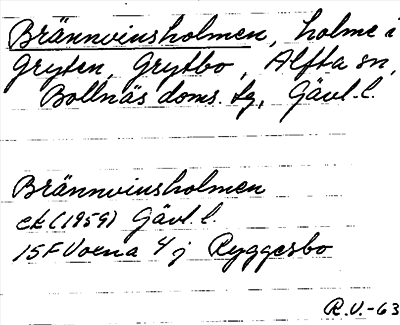 Brännvinsholmen, holme i
Gryten, Grytbo, Alfta sn,
Bollnäs doms. tg, Gävl. l.
Brännvinsholmen
ek (1959) Gävl. l.
15F Voxna 4 j Ryggesbo
R.V.-63